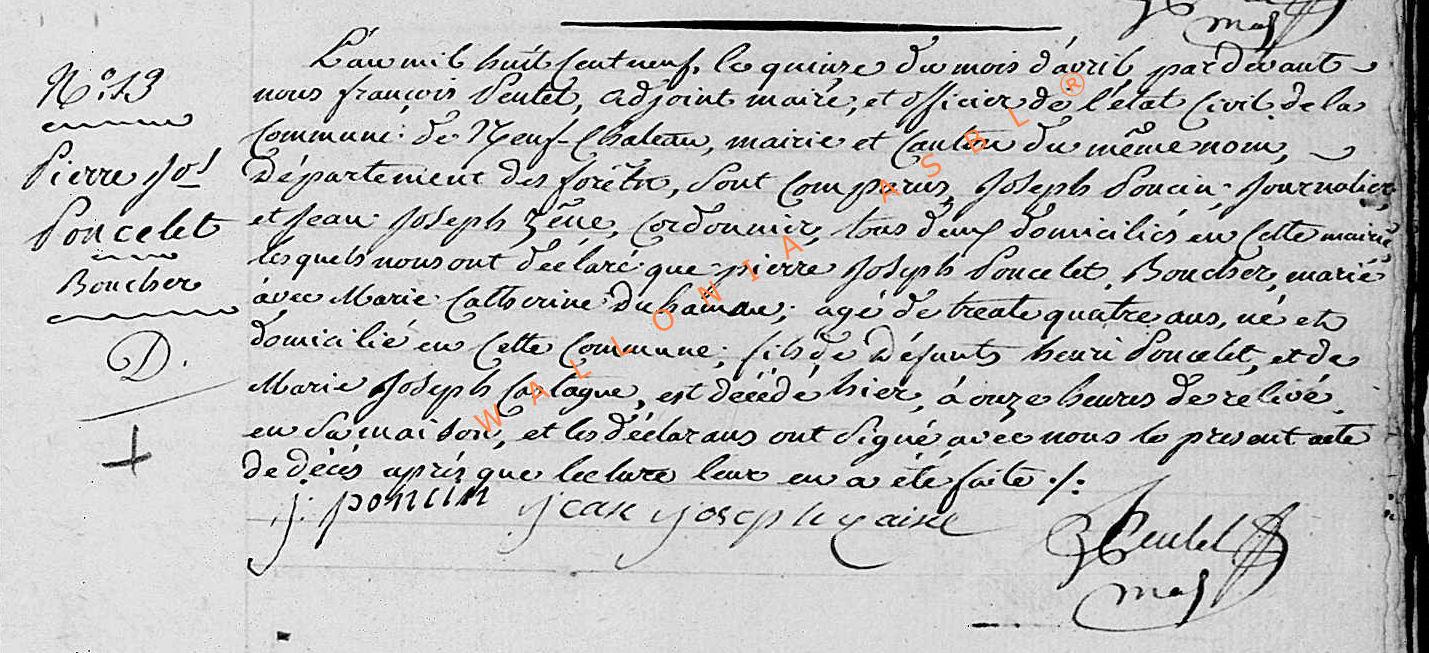 maj
N.º 13
Pierre Jos
Poncelet
Boucher
D.
L'an mil huit cent neuf, le quinze du mois d'avril pardevant
nous françois Peutet, adjoint maire, et officier de l'état Civil de la
Commune de Neuf-Chateau, mairie et Canton du même nom,
Département des forêts, sont comparus Joseph Poncin, Journalier,
et Jean Joseph Zêne, Cordonnier, tous deux domiciliés en Cette mairie
lesquels nous ont déclaré que pierre Joseph Poncelet, Boucher, marié
avec Marie Catherine Duhamau, agé de trente quatre ans, né et
domicilié en Cette Commune, fils de défunts henri Poncelet, et de
Marie Joseph Castagne, est décédé hier, à onze heures de relivé,
en Sa maison, et les déclarans ont Signé avec nous le present acte
de décès après que lecture leur en a été faite ./.
j: poncin jean joseph zaine Peutet
maj
WALLONIA ASBL ®